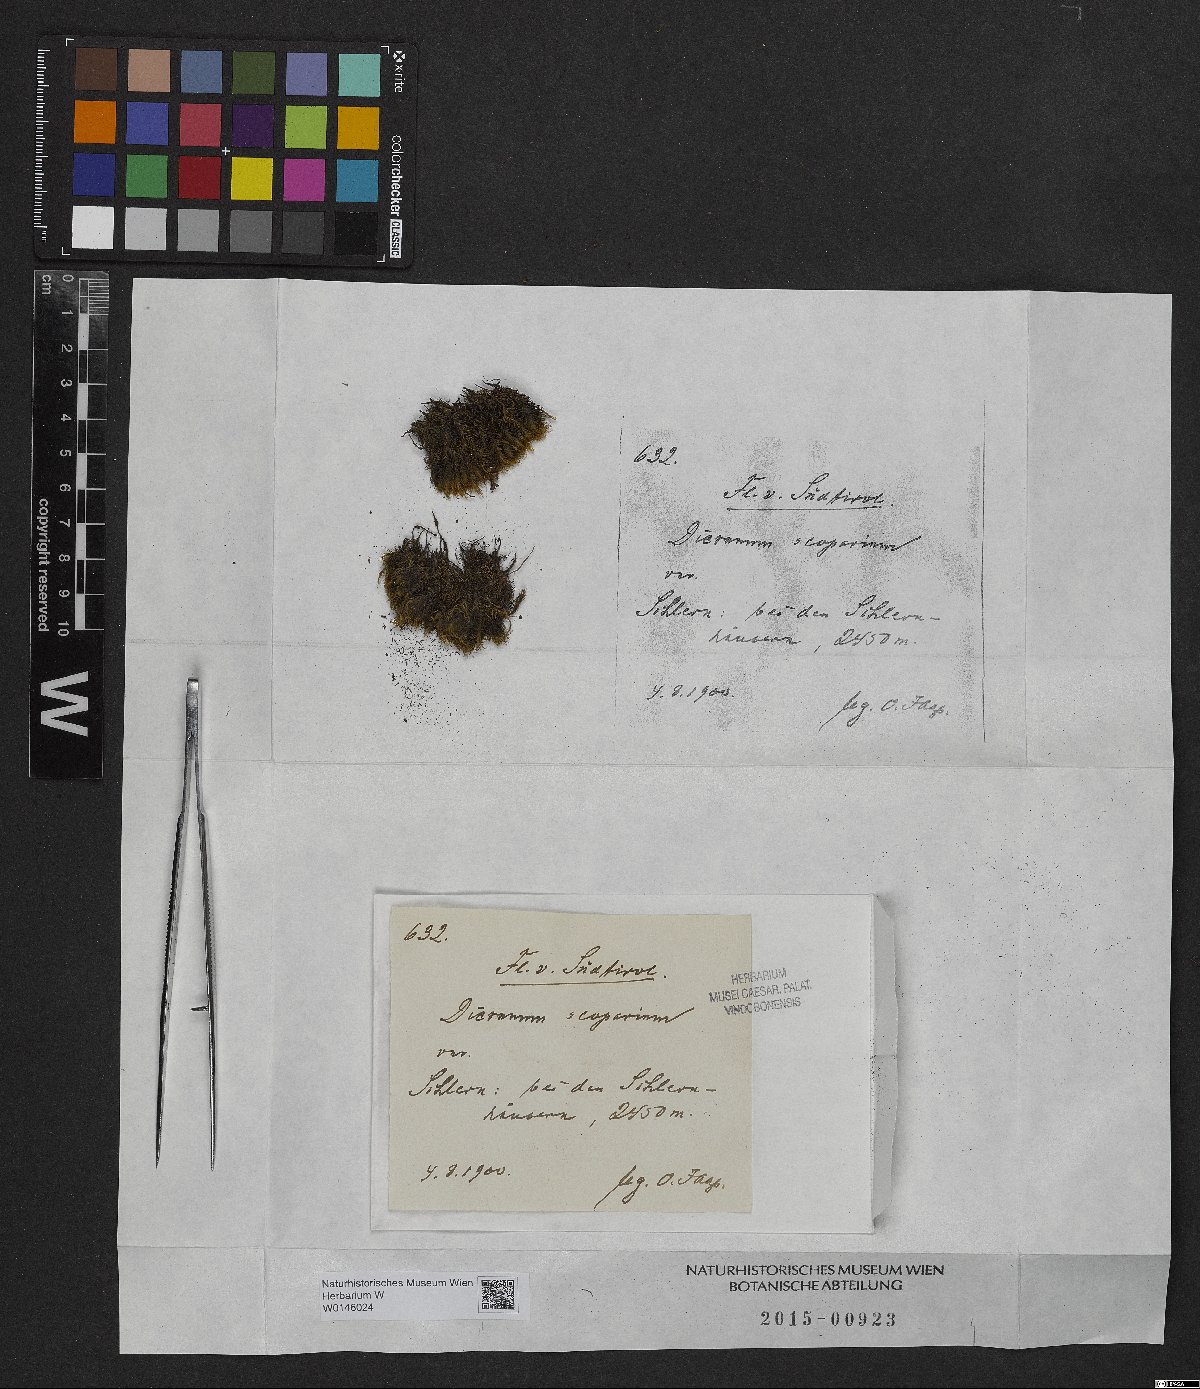 x-rite
colorchecker CLASSIC
0 1 2 3 4 5 6 7 8 9 10
cm
copyright reserved
W
632.
Fl. v. Südtirol.
Dicranum scoparium
var.
Schlern: bei den Schlern-
häusern, 2450 m.
4.8.1900.
leg. O. Jaap.
632.
Fl. v. Südtirol.
Dicranum scoparium
var.
Schlern: bei den Schlern-
häusern, 2450 m.
4.8.1900.
leg. O. Jaap.
HERBARIUM
MUSEI CAESAR. PALAT.
VINDOBONENSIS
Naturhistorisches Museum Wien
Herbarium W
W0146024
NATURHISTORISCHES MUSEUM WIEN
BOTANISCHE ABTEILUNG
2015-00923